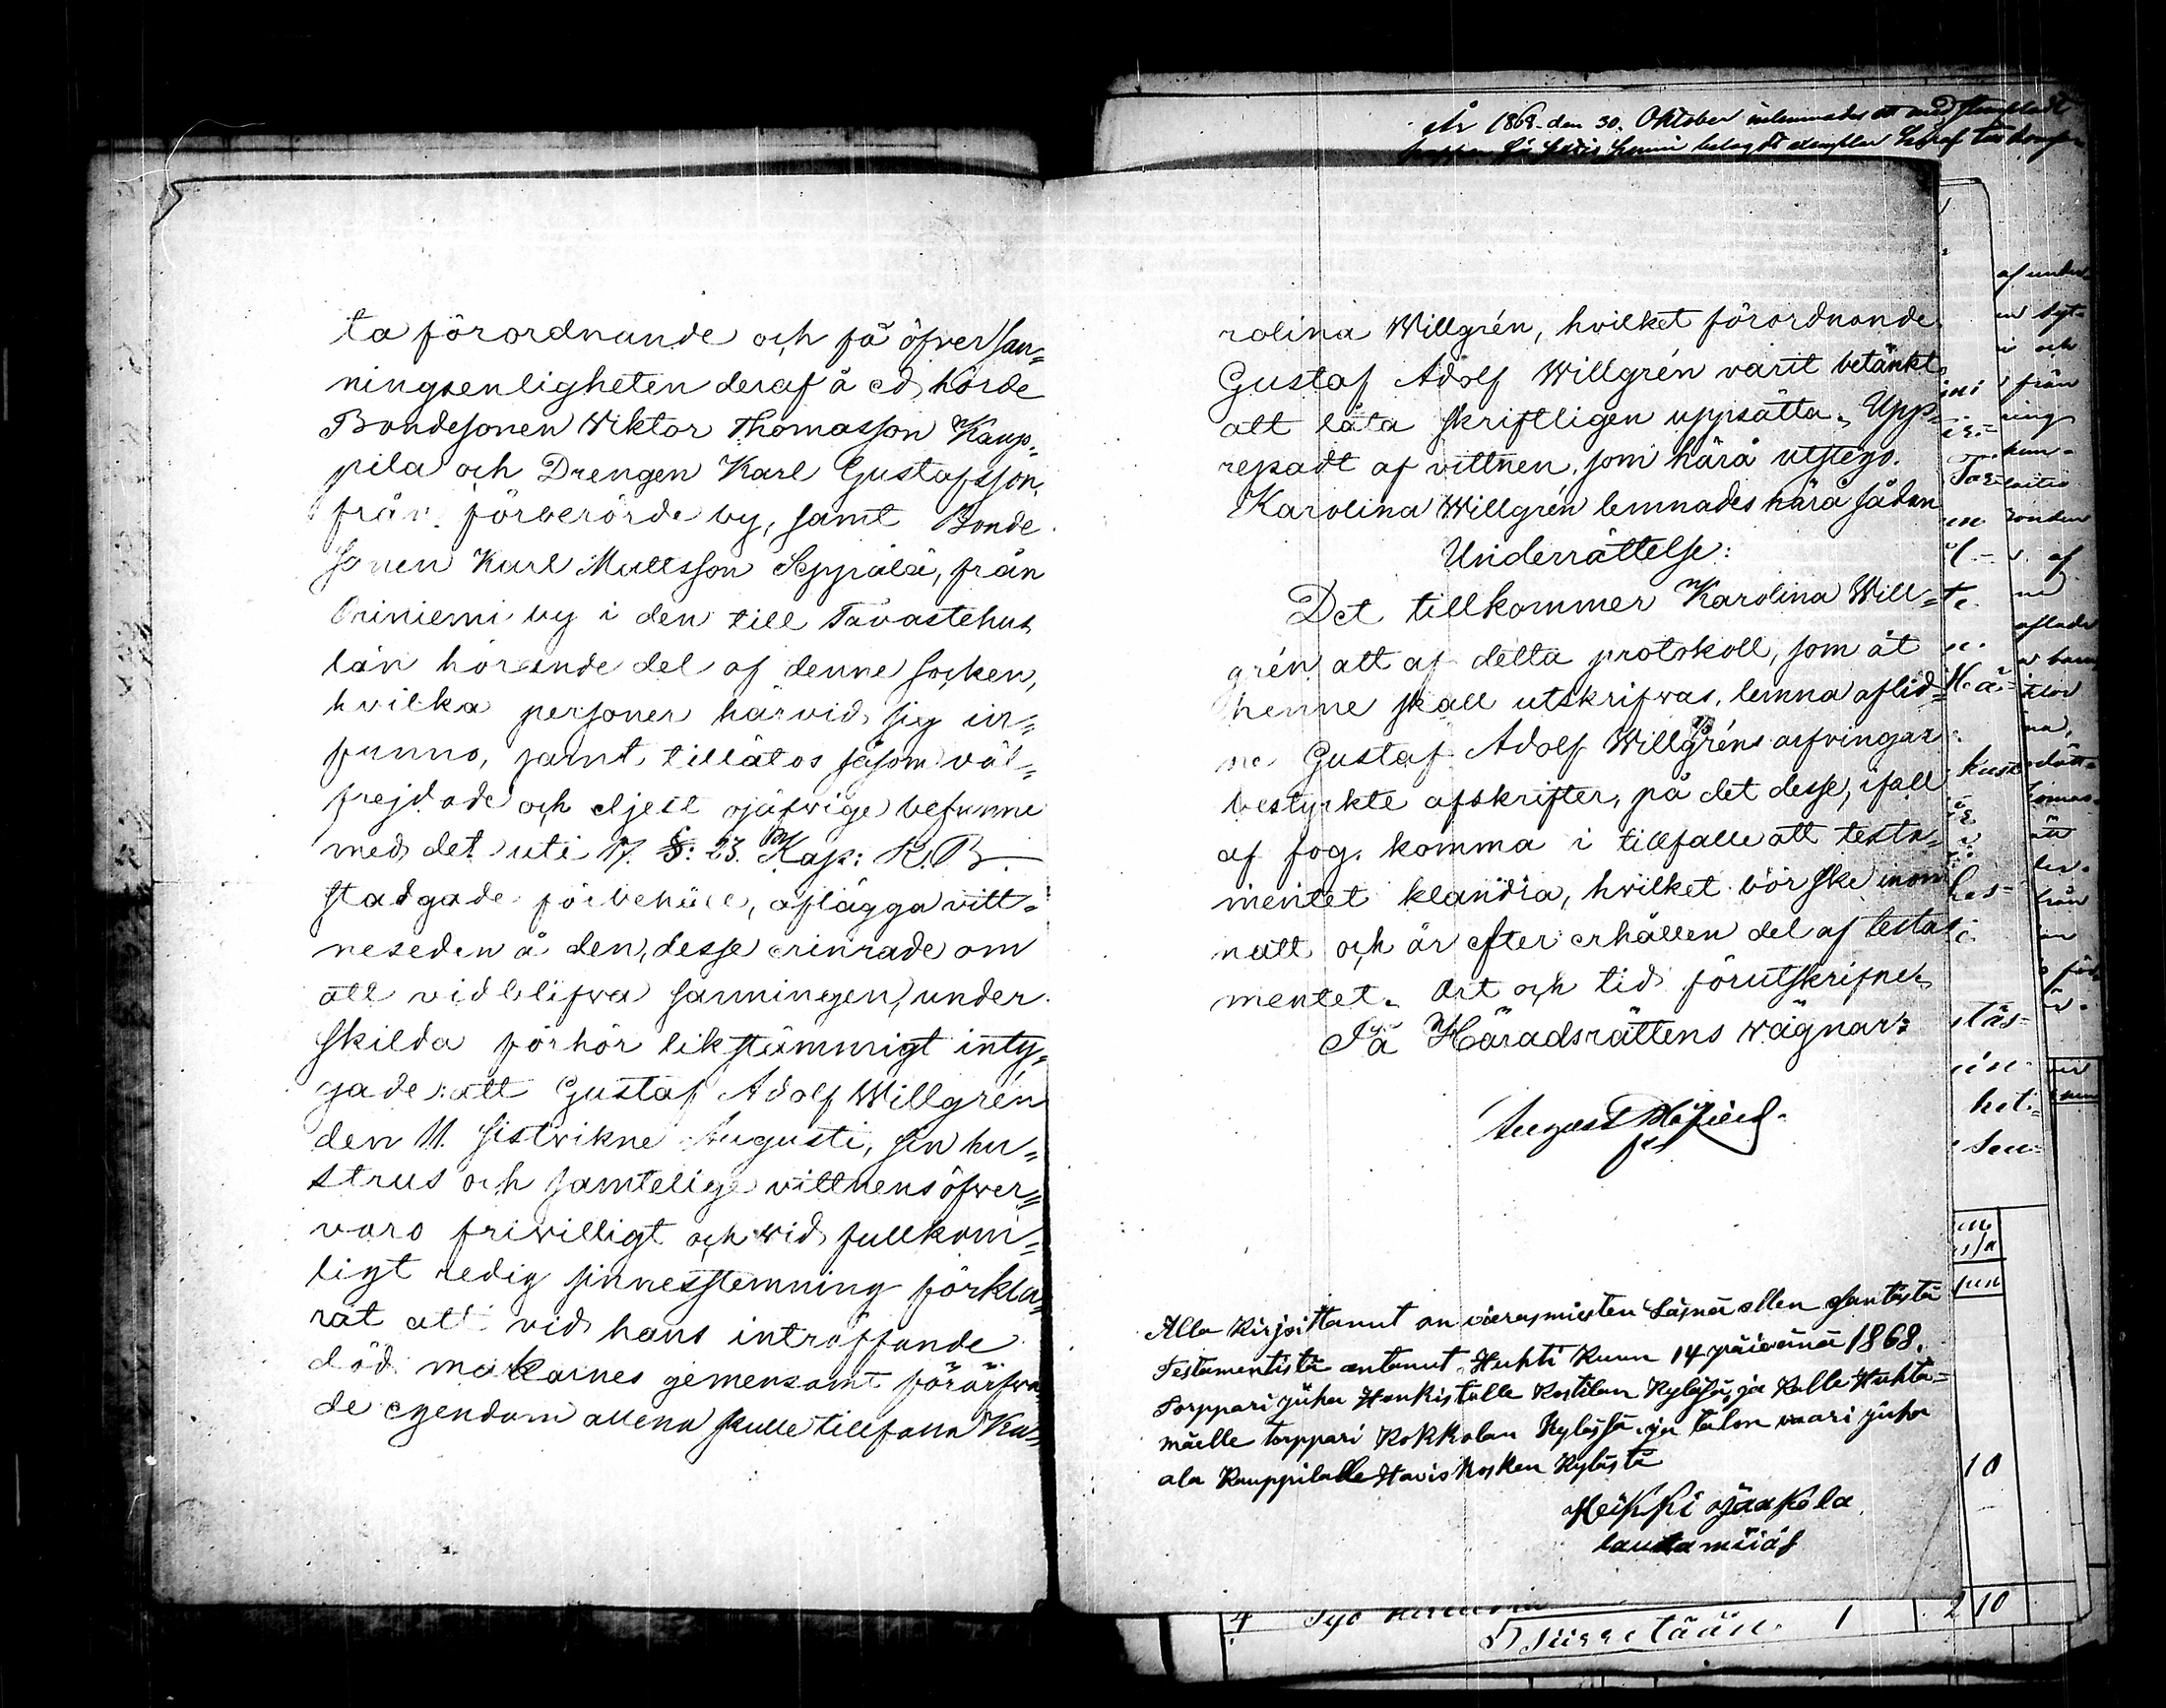 ta förordnande och få öfver san=
ningsenligheten deraf å ed hörde
Bondesonen Wiktor Thomasson Kaup=
pila och Drengen Karl Gustafsson,
från förberörde by, samt Bonde
sonen Karl Mattsson Seppälä, från
Oriniemi by i den till Tavastehus
län hörande del af denne socken,
hvilka personer härvid sig in=
funno, samt tillätos såsom väl=
frejdade och eljest ojäfvige befunne
med det uti 17. §: 23. Kap: R. B.
stadgade förbehåll, aflägga vitt=
neseden å den, desse erinrade om
att vidblifva sanningen, under
skilda förhör likstämmigt inty=
gade: att Gustaf Adolf Willgrén
den 11. sistvikne Augusti, sin hu=
strus och samtelige vittnens öfver=
varo frivilligt och vid fullkom=
ligt redig sinnesstemning förkla=
rat att vid hans inträffande
död makarnes gemensamt förärfva
de egendom allena skulle tillfalla Ka=
År 1868 den 30. Oktober inlemnades
rolina Willgrén, hvilket förordnande
Gustaf Adolf Willgrén varit betänkt
att låta skriftligen uppsätta. Upp=
repadt af vittnen, som härå utstego.
Karolina Willgrén lemnades härå sådan
Underrättelse:
Det tillkommer Karolina Will=
grén att af detta protokoll, som åt
henne skall utskrifvas, lemna aflid=
ne Gustaf Adolf Willgréns arfvingar
bestyrkte afskrifter, på det desse, ifall
af fog. komma i tillfalle att testa=
mentet klandra, hvilket bör ske inom
natt och år efter erhållen del af testa
mentet. Ort och tid förutskrifne.
På Häradsrättens vägnar:
August
Alla kirjoittanut on vierasmiesten läsnä ollen
Testamentistä antanut Huhti kuun 14 päivänä 1868.
Torppari Juha Honkistolle Kostilan Kylässä, ja Kalle Huhta=
mäelle torppari Kokkolan Kylässä, ja talon vaari Juha
ala Kauppilalle Haviskosken Kylästä
Heikki Jaakola
lautamiäs
4
Siirretään 1 2 10
10